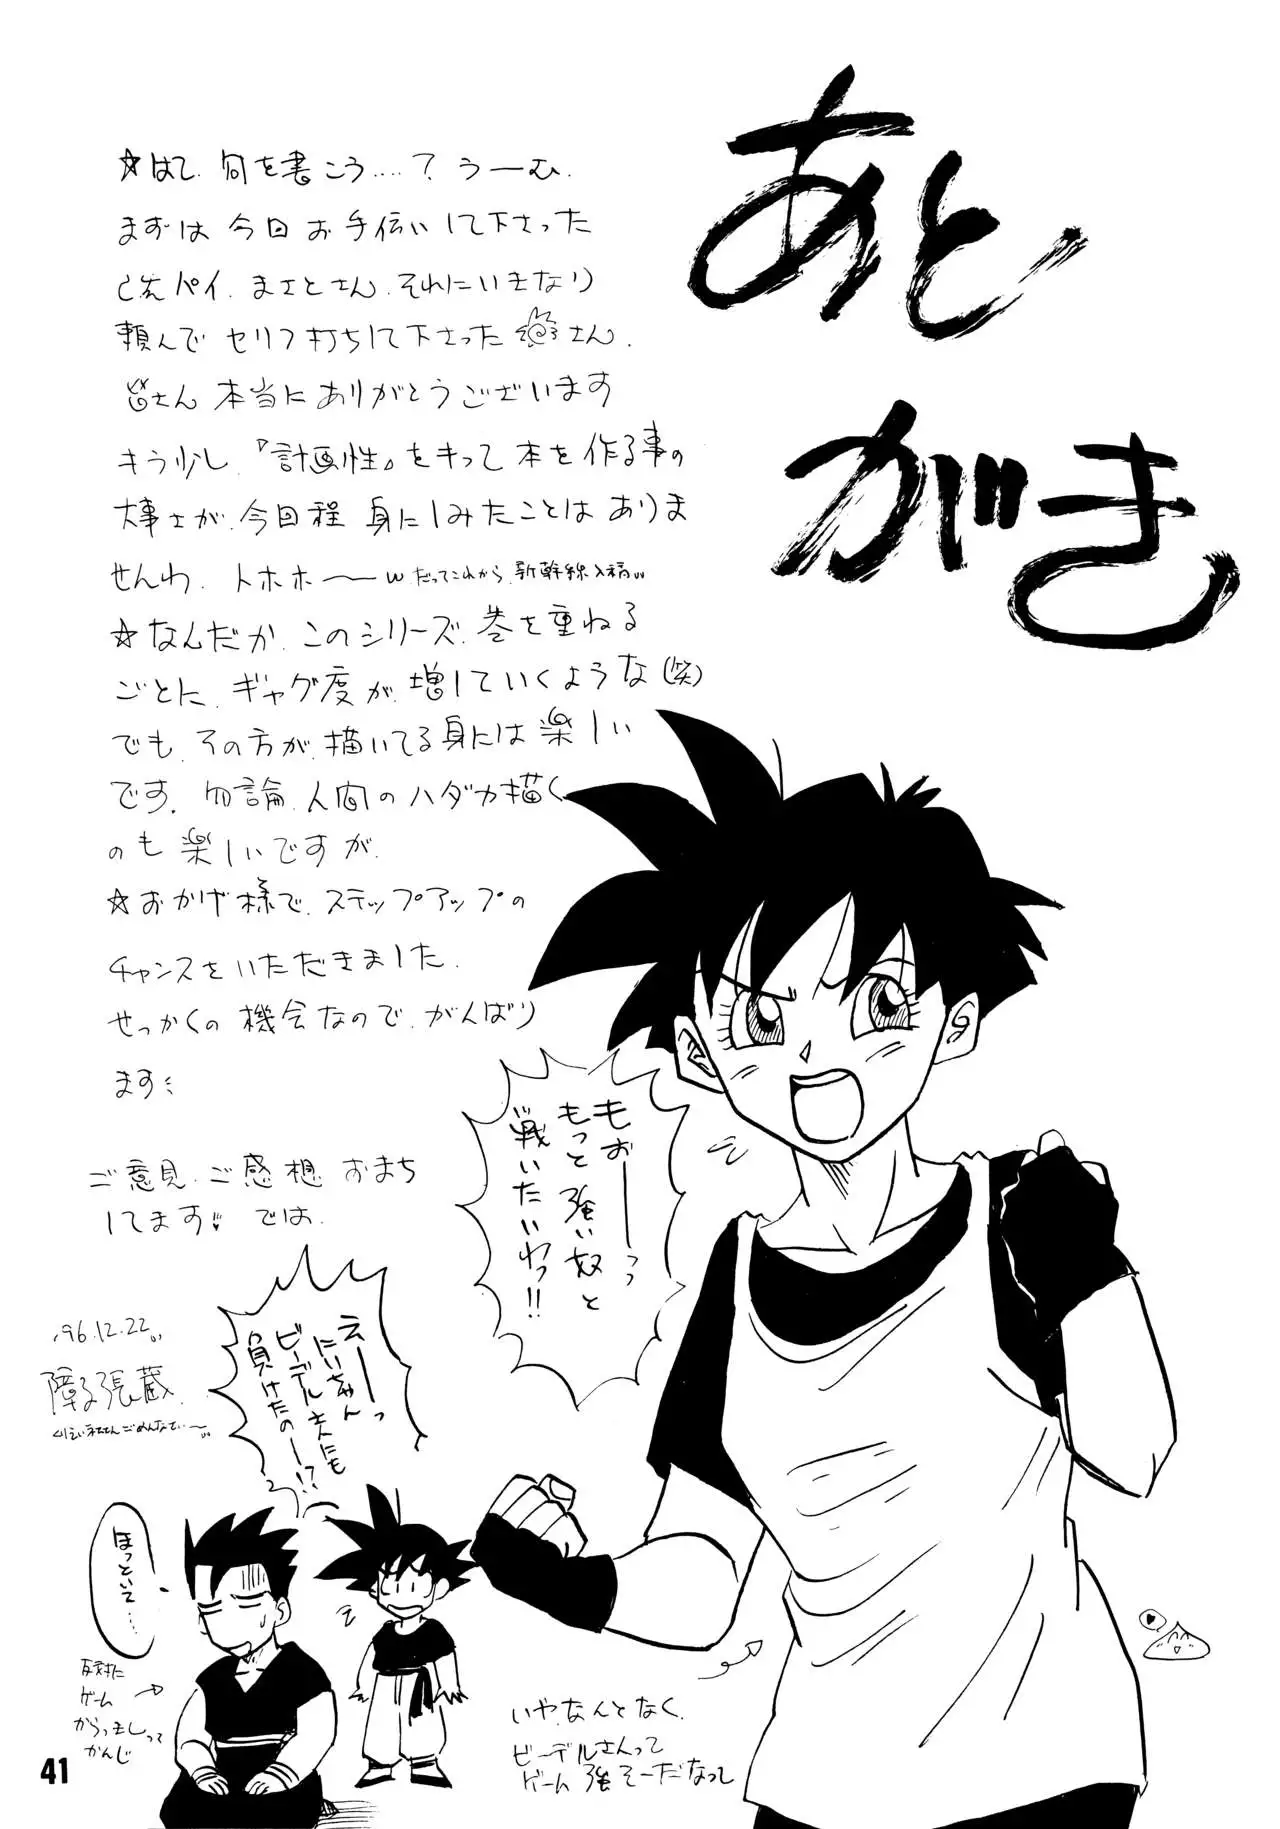 あと
がき
☆はて、何を書こう……？うーむ、
まずは今回お手伝いして下さった
先パイ、まさとさん、それにいきなり
頼んでセリフ打ちして下さった
さん、
皆さん本当にありがとうございます
もう少し、『計画性』をもって本を作る事の
大事さが、今回程身にしみたことはありま
せんわ、トホホ〜〜 だってこれから、新幹線入稿
☆なんだか、このシリーズ、巻を重ねる
ごとに、ギャグ度が、増していくような(笑)
でも、その方が、描いてる身には楽しい
です。勿論、人間のハダカ描く
のも楽しいですが、
☆おかげ様で、ステップアップの
チャンスをいただきました、
せっかくの機会なので、がんばり
ます
ご意見、ご感想おまち
してます では、
'96.12.22
障子張蔵
もおーーっっ
もっと強い奴と
戦いたいわっ!!
えーーっ
にいちゃん
ビーデルさんにも
負けたのー!?
ほっといて……
反対に
ゲーム
からっきしって
かんじ
いや、なんとなく、
ビーデルさんって
ゲーム強そーだなって
41